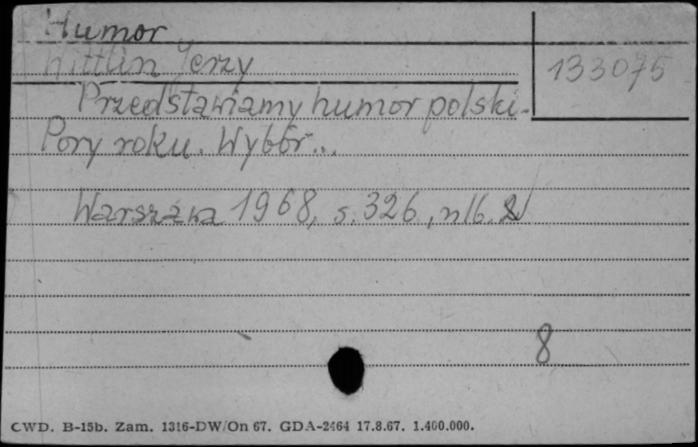 Humor
Wittlin Jerzy
133075
Przedstawiamy humor polski.
Pory roku. Wybór...
Warszawa 1968, s. 326, nlb. 2
8
CWD. B-15b. Zam. 1316-DW/On 67. GDA-2464 17.8.67. 1.400.000.